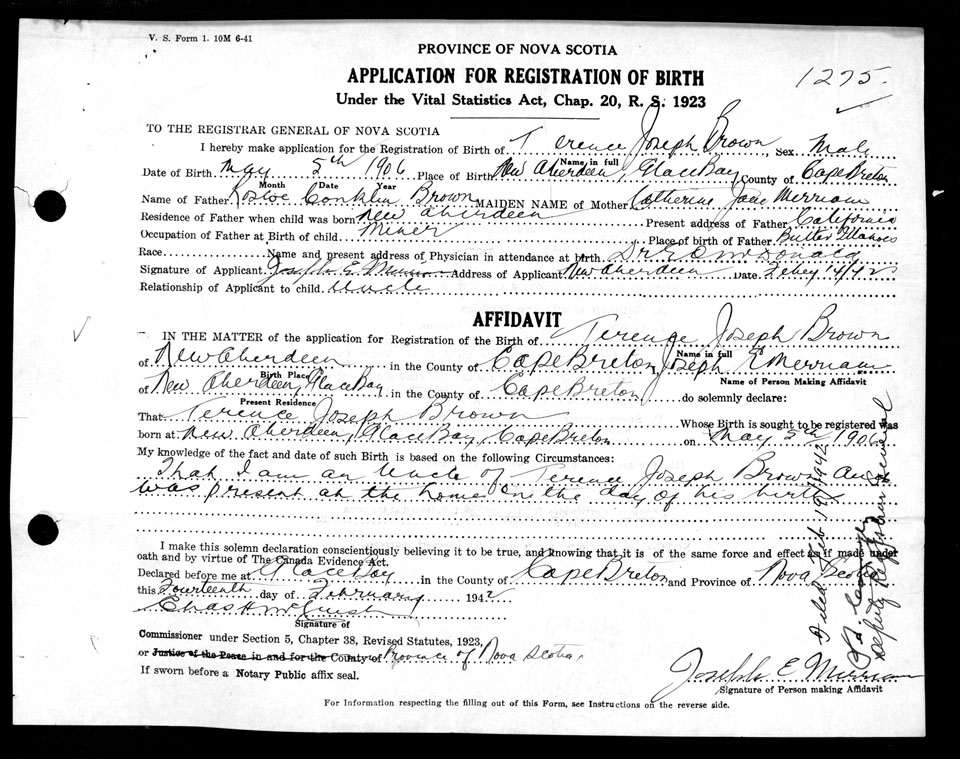 V. S. Form 1. 10M 6-41
PROVINCE OF NOVA SCOTIA
APPLICATION FOR REGISTRATION OF BIRTH
1275.
Under the Vital Statistics Act, Chap. 20, R. S. 1923
TO THE REGISTRAR GENERAL OF NOVA SCOTIA
I hereby make application for the Registration of Birth of Terence Joseph Brown, Sex Male
Name in full
Date of Birth May 5th 1906 Place of Birth New Aberdeen, Glace Bay County of Cape Breton
Month Date Year
Name of Father Conklin Brown MAIDEN NAME of Mother Catherine Jane Merriam
Residence of Father when child was born New Aberdeen Present address of Father California
Occupation of Father at Birth of child Miner Place of birth of Father Butte
Race Name and present address of Physician in attendance at birth Dr McDonald
Signature of Applicant Joseph E. Address of Applicant New Aberdeen Date Feby 14/42
Relationship of Applicant to child Uncle
AFFIDAVIT
IN THE MATTER of the application for Registration of the Birth of Terence Joseph Brown
Name in full
of New Aberdeen in the County of Cape Breton Joseph E Merriam
Birth Place Name of Person Making Affidavit
of New Aberdeen, Glace Bay in the County of Cape Breton do solemnly declare:
Present Residence
That Terence Joseph Brown Whose Birth is sought to be registered was
born at New Aberdeen, Glace Bay, Cape Breton on May 5th 1906
My knowledge of the fact and date of such Birth is based on the following Circumstances:
That I am an Uncle of Terence Joseph Brown and
was present at the home on the day of his birth
I make this solemn declaration conscientiously believing it to be true, and knowing that it is of the same force and effect as if made under
oath and by virtue of The Canada Evidence Act.
Declared before me at Glace Bay in the County of Cape Breton and Province of Nova Scotia
this Fourteenth day of February 1942
Chas H
Signature of
Commissioner under Section 5, Chapter 38, Revised Statutes, 1923,
or Justice of the Peace in and for the County of Province of Nova Scotia.
If sworn before a Notary Public affix seal.
Joseph E Merriam
Signature of Person making Affidavit
For Information respecting the filling out of this Form, see Instructions on the reverse side.
Filed Feb 19 1942
Deputy Registrar General